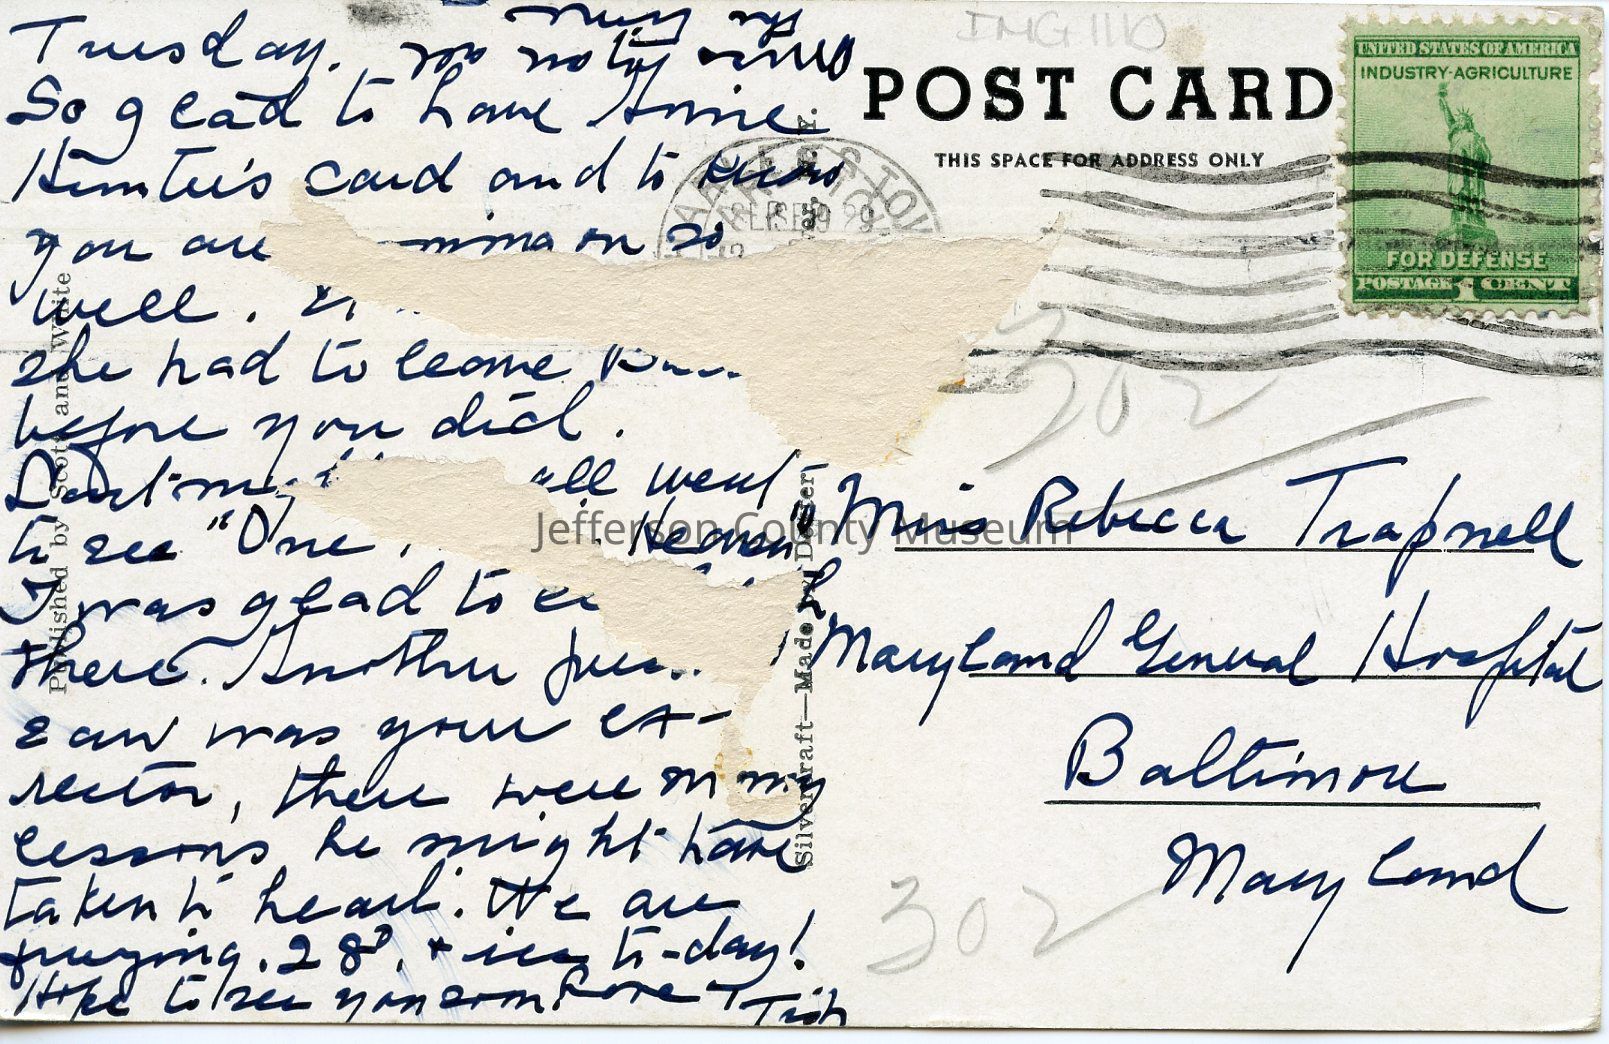 Tuesday.
So glad to have Annie
Hunter's card and to know
you are coming on so
well.
she had to leave
before you did.
Last night all went
to see "One in Heaven
I was glad to
there. Another
saw was your ex-
rector, there were many
lessons he might have
taken to heart. We are
freezing. 28°. + ice to-day!
Hope to see you soon. Love Tish
Miss Rebecca Trapnell
Maryland General Hospital
Baltimore
Maryland
POST CARD
THIS SPACE FOR ADDRESS ONLY
UNITED STATES OF AMERICA
INDUSTRY-AGRICULTURE
FOR DEFENSE
POSTAGE 1 CENT
Published by Scott and White
Silvercraft—Made by Dexter
302
302
IMG1110
Jefferson County Museum